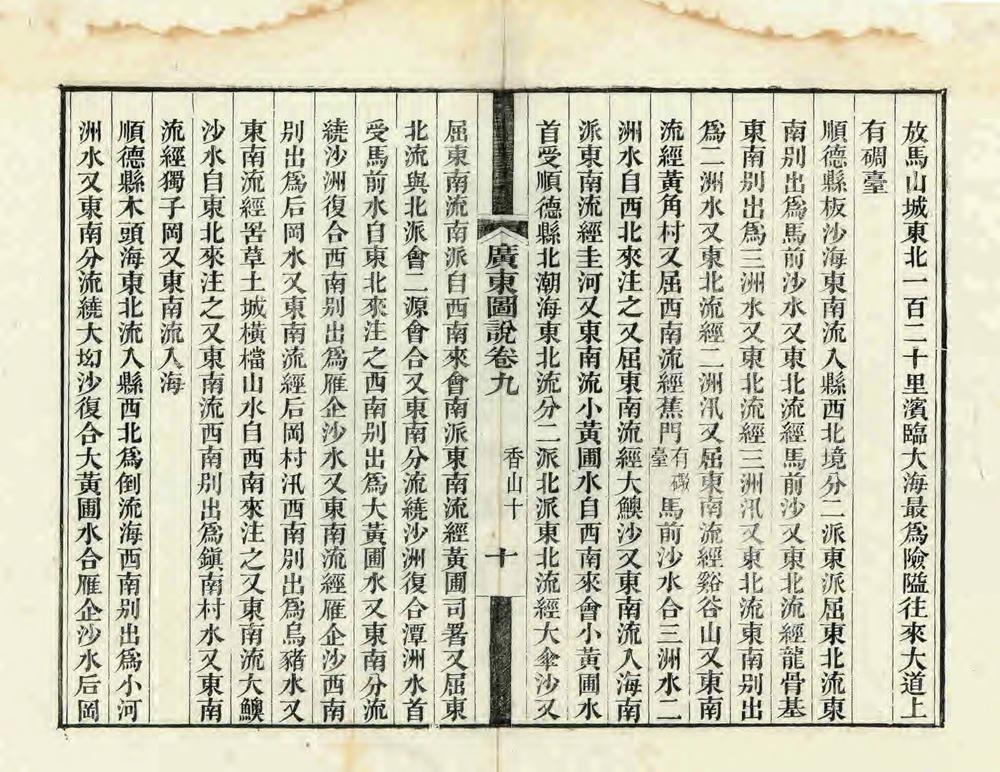 放馬山城東北一百二十里濱臨大海最爲險隘往來大道上
有碉臺
順德縣板沙海東南流入縣西北境分二派東派屈東北流東
南别出爲馬前沙水又東北流經馬前沙又東北流經龍骨基
東南别出爲三洲水又東北流經三洲汛又東北流東南别出
爲二洲水又東北流經二洲汛又屈東南流經谿谷山又東南
流經黃角村又屈西南流經蕉門有礮臺馬前沙水合三洲水二
洲水自西北來注之又屈東南流經大鰅沙又東南流入海南
派東南流經圭河又東南流小黃圃水自西南來會小黃圃水
首受順德縣北潮海東北流分二派北派東北流經大傘沙又
廣東圖說卷九
香山十
十
屈東南流南派自西南來會南派東南流經黃圃司署又屈東
北流與北派會二源會合又東南分流繞沙洲復合潭洲水首
受馬前水自東北來注之西南别出爲大黃圃水又東南分流
繞沙洲復合西南别出爲雁企沙水又東南流經雁企沙西南
别出爲后岡水又東南流經后岡村汛西南别出爲烏豬水又
東南流經罟草土城橫檔山水自西南來注之又東南流大鰅
沙水自東北來注之又東南流西南别出爲鎭南村水又東南
流經獨子岡又東南流入海
順德縣木頭海東北流入縣西北爲倒流海西南别出爲小河
洲水又東南分流繞大㘭沙復合大黃圃水合雁企沙水后岡